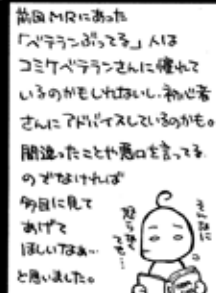 前回MRにあった
「ベテランぶってる」人は
コミケベテランさんに憧れて
いるのかもしれないし、初心者
さんにアドバイスしているのかも。
間違ったことや悪口を言ってる
のでなければ
多目に見て
あげて
ほしいなぁ…
と思いました。
そんなに
怒らなく
ても…